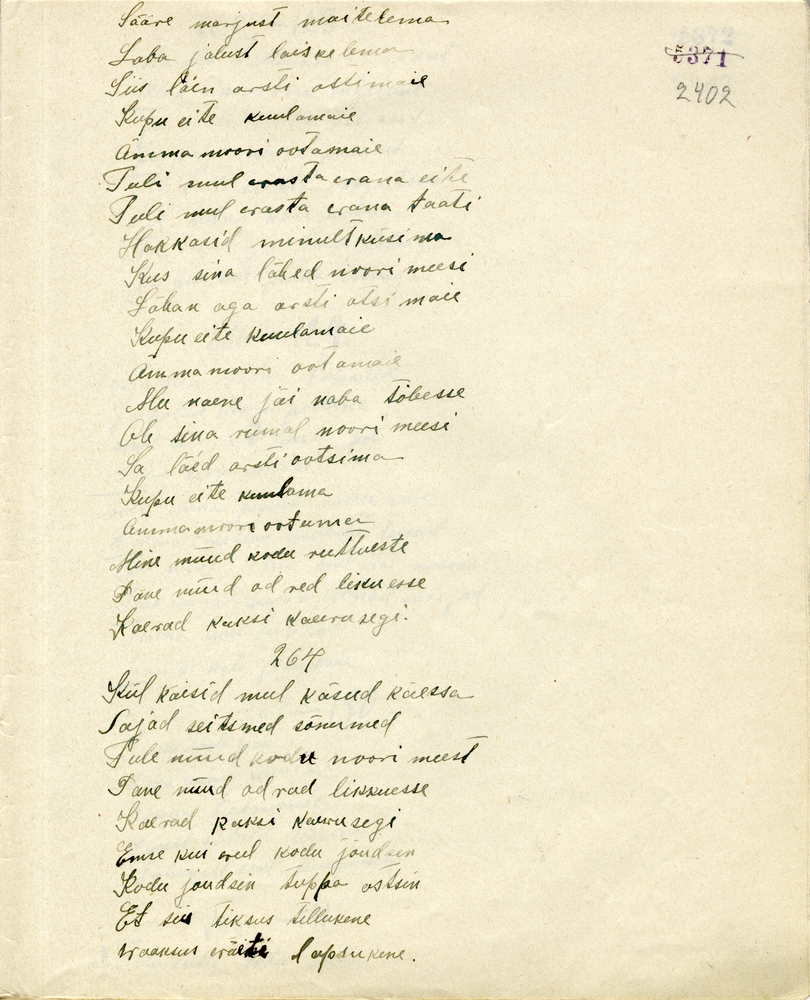 Sääre marjust maitelema
Laba jalust laiskelema
Siis läin arsti ostimaie
Kupu eite kuulamaie
Ämma moori ootamaie
Tuli mul erasta erana eite
Tuli mul erasta erana taati
Hakkasid minult küsima
Kus sina lähed noori meesi
Lähan aga arsti otsi maie
Kupu eite kuulamaie
Ämma moori ootamaie
Mu naene jäi naba tõbesse
Oh sina rumal noori meesi
Sa läed arsti ootsima
Kupu eite kuulama
Ämma moori ootama
Mine nüüd kodu ruttueste
Pane nüüd ad red likuesse
Kaerad kaksi kauru segi.
264
Kül käisid mul käsud käessa
Sajad seitsmed sõnumed
Tule nüüd kodu noori meest
Pane nüüd ad rad likkuesse
Kaerad kaksi kauru segi
Enne kui eel kodu jõudsin
Kodu jõudsin tuppa astsin
Et siis tiksus tillukene
waaksus lapsukene.
5371
2402